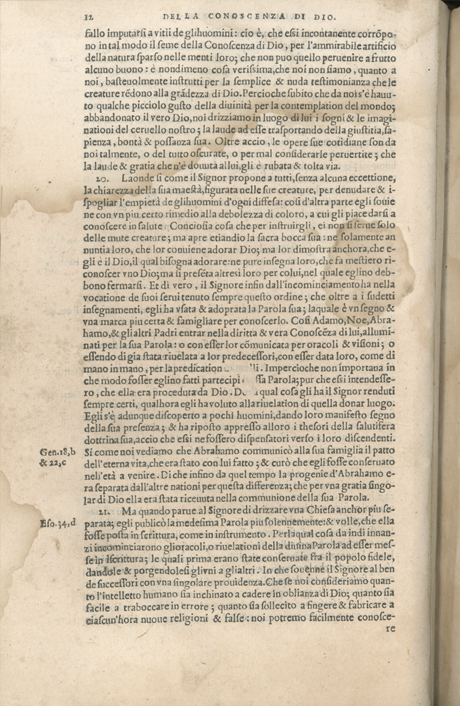 12 DELLA CONOSCENZA DI DIO.
fallo imputarsi a vitii de glihuomini: cio è, che essi incontanente corrõpo-
no in tal modo il seme della Conoscenza di Dio, per l'ammirabile artificio
della natura sparso nelle menti loro; che non puo quello peruenire a frutto
alcuno buono: è nondimeno cosa verissima, che noi non siamo, quanto a
noi, basteuolmente instrutti per la semplice & nuda testimonianza che le
creature rēdono alla grãdezza di Dio. Percioche subito che da nois'è hauu-
to qualche picciolo gusto della diuinità per la contemplation del mondo;
abbandonato il vero Dio, noi drizziamo in luogo di lui i sogni & le imagi-
nationi del ceruello nostro; & la laude ad esse trasportando della giustitia, sa-
pienza, bontà & possanza sua. Oltre accio, le opere sue cotidiane son da
noi talmente, o del tutto oscurate, o per mal considerarle peruertite; che
la laude & gratia che n'è douuta allui, gli è rubata & tolta via.
20. Laonde si come il Signor propone a tutti, senza alcuna eccettione,
la chiarezza della sua maestà, figurata nelle sue creature, per denudare & i-
spogliar l'empietà de glihuomini d'ogni difesa: così d'altra parte egli souie
ne con vn piu certo rimedio alla debolezza di coloro, a cui gli piace darsi a
conoscere in salute. Conciosia cosa che per instruirgli, ei non si serue solo
delle mute creature; ma apre etiandio la sacra bocca sua: ne solamente an
nuntia loro, che lor conuiene adorar Dio; ma lor dimostra anchora, che e-
gli è il Dio, il qual bisogna adorare: ne pure insegna loro, che fa mestiero ri-
conoscer vno Dio; ma si presēta altresi loro per colui, nel quale eglino deb-
bono fermarsi. Et di vero, il Signore infin dall'incominciamento ha nella
vocatione de suoi serui tenuto sempre questo ordine; che oltre a i sudetti
insegnamenti, egli ha vsata & adoprata la Parola sua; laquale è vn segno &
vna marca piu certa & famigliare per conoscerlo. Così Adamo, Noe, Abra-
hamo, & gli altri Padri entrar nella diritta & vera Conoscēza di lui, allumi-
nati per la sua Parola: o con esser lor cõmunicata per oracoli & visioni; o
essendo di gia stata riuelata a lor predecessori, con esser data loro, come di
mano in mano, per la predication li. Impercioche non importaua in
che modo fosser eglino fatti partecipi ssa Parola; pur che essi intendesse-
ro, che ella era proceduta da Dio. D. qual cosa gli ha il Signor renduti
sempre certi, qualhora egli ha voluto alla riuelation di quella donar luogo.
Egli s'è adunque discoperto a pochi huomini, dando loro manifesto segno
della sua presenza; & ha riposto appresso alloro i thesori della salutifera
dottrina sua, accio che essi ne fossero dispensatori verso i loro discendenti.
Gen. 18, b Si come noi vediamo che Abrahamo communicò alla sua famiglia il patto
& 22, c dell'eterna vita, che era stato con lui fatto; & curò che egli fosse conseruato
nell'età a venire. Di che infino da quel tempo la progenie d'Abrahamo e-
ra separata dall'altre nationi per questa differenza; che per vna gratia singo-
lar di Dio ella era stata riceuuta nella communione della sua Parola.
21. Ma quando parue al Signore di drizzare vna Chiesa anchor piu se-
Eso. 34, d parata; egli publicò la medesima Parola piu solennemente: & volle, che ella
fosse posta in scrittura, come in instrumento. Per laqual cosa da indi innan-
zi incominciarono gli oracoli, o riuelationi della diuina Parola ad esser mes-
se in iscrittura; le quali prima erano state conseruate fra il popolo fidele,
dandole & porgendolesi gli vni a gli altri. In che souenne il Signore al ben
de successori con vna singolare prouidenza. Che se noi consideriamo quan-
to l'intelletto humano sia inchinato a cadere in obliuanza di Dio; quanto sia
facile a traboccare in errore; quanto sia sollecito a fingere & fabricare a
ciascun'hora nuoue religioni & false: noi potremo facilmente conosce-
re